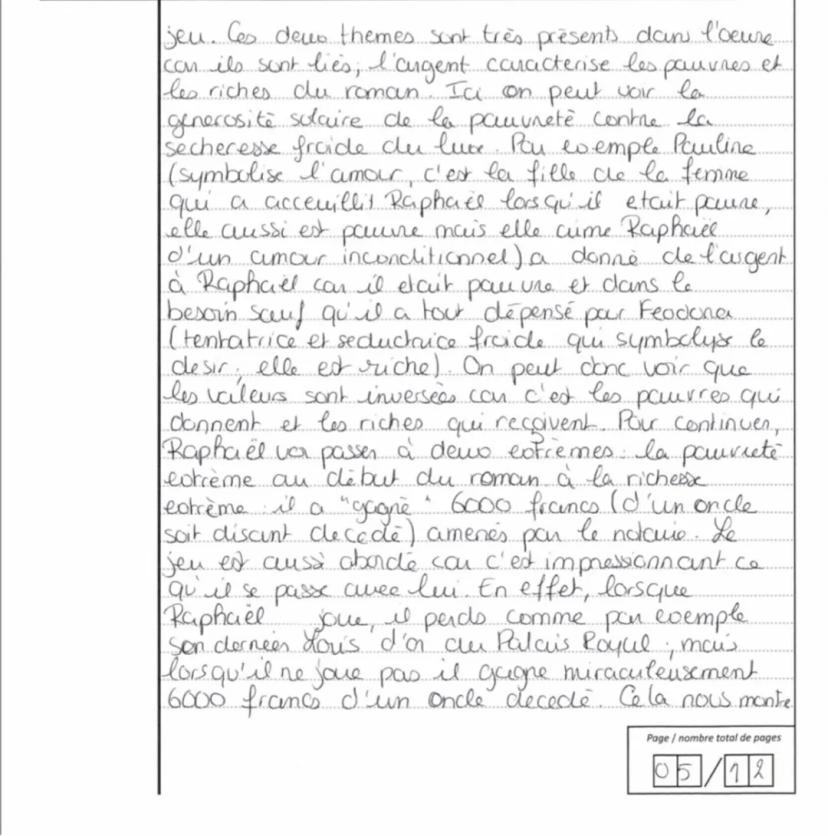 jeu. Ces deux themes sont très présents dans l'oeuvre
car ils sont liés, l'argent caracterise les pauvres et
les riches du roman. Ici on peut voir la
generosité solaire de la pauvreté contre la
secheresse froide du luxe. Par exemple Pauline
(symbolise l'amour, c'est la fille de la femme
qui a acceuillit Raphaël lorsqu'il etait pauvre,
elle aussi est pauvre mais elle aime Raphaël
d'un amour inconditionnel) a donné de l'argent
à Raphaël car il etait pauvre et dans le
besoin sauf qu'il a tout dépensé par Feodora
(tentatrice et seductrice froide qui symbolise le
desir, elle est riche). On peut donc voir que
les valeurs sont inversées car c'est les pauvres qui
donnent et les riches qui reçoivent. Pour continuer,
Raphaël va passer à deux extrèmes : la pauvreté
extrème au début du roman à la richesse
extrème : il a "gagné" 6000 francs (d'un oncle
soit disant decédé) amenés par le notaire. Le
jeu est aussi abordé car c'est impressionnant ce
qu'il se passe avec lui. En effet, lorsque
Raphaël joue, il perds comme par exemple
son dernier Louis d'or au Palais Royal, mais
lorsqu'il ne joue pas il gagne miraculeusement
6000 francs d'un oncle decedé. Cela nous montre
Page / nombre total de pages
05/12